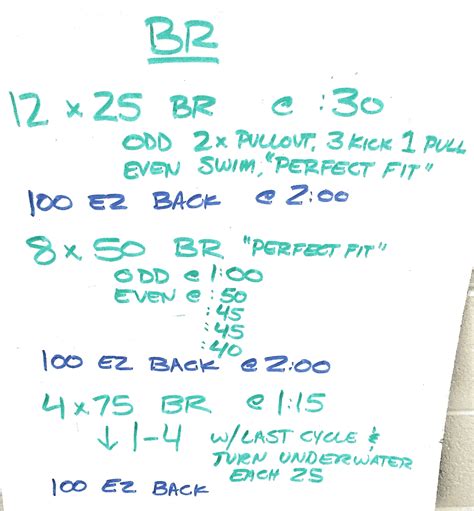 BR
12 x 25 BR @ :30
ODD 2x PULLOUT, 3 KICK 1 PULL
EVEN SWIM, "PERFECT FIT"
100 EZ BACK @ 2:00
8 x 50 BR "PERFECT FIT"
ODD @ 1:00
EVEN @ :50
:45
:45
:40
100 EZ BACK @ 2:00
4 x 75 BR @ 1:15
↓ 1-4 W/LAST CYCLE &
TURN UNDERWATER
EACH 25
100 EZ BACK